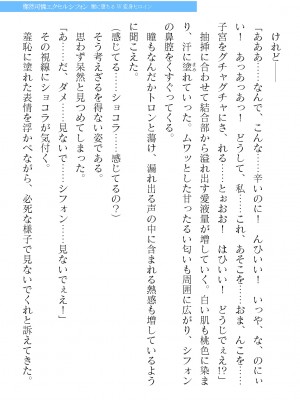 エクセルシフォン
けれど――
「あああ……なんで、こんな……辛いのに！　んひいい！　いっや、な、のにぃい！　あっあっあっ！　どうして、私……これ、あそこを……おま、んこを……
子宮をグチャグチャにさ、される……とぉおお！　はひいい！　どうじでぇえ!?」
抽挿に合わせて結合部から溢れ出す愛液量が増していく。白い肌も桃色に染ま
り、汗に塗れていった。ムワッとした甘ったるい匂いも周囲に広がり、シフォン
の鼻腔をくすぐってくる。
瞳もなんだかトロンと蕩け、漏れ出る声の中に含まれる熱感も増しているよう
に聞こえた。
（感じてる……ショコラ……感じてるの？）
そう考えざるを得ない姿である。
思わず呆然と見つめてしまった。
「あ……だ、ダメ……見ないで……シフォン……見ないでぇえ！」
その視線にショコラが気付く。
羞恥に塗れた表情を浮かべながら、必死な様子で見ないでくれと訴えてきた。